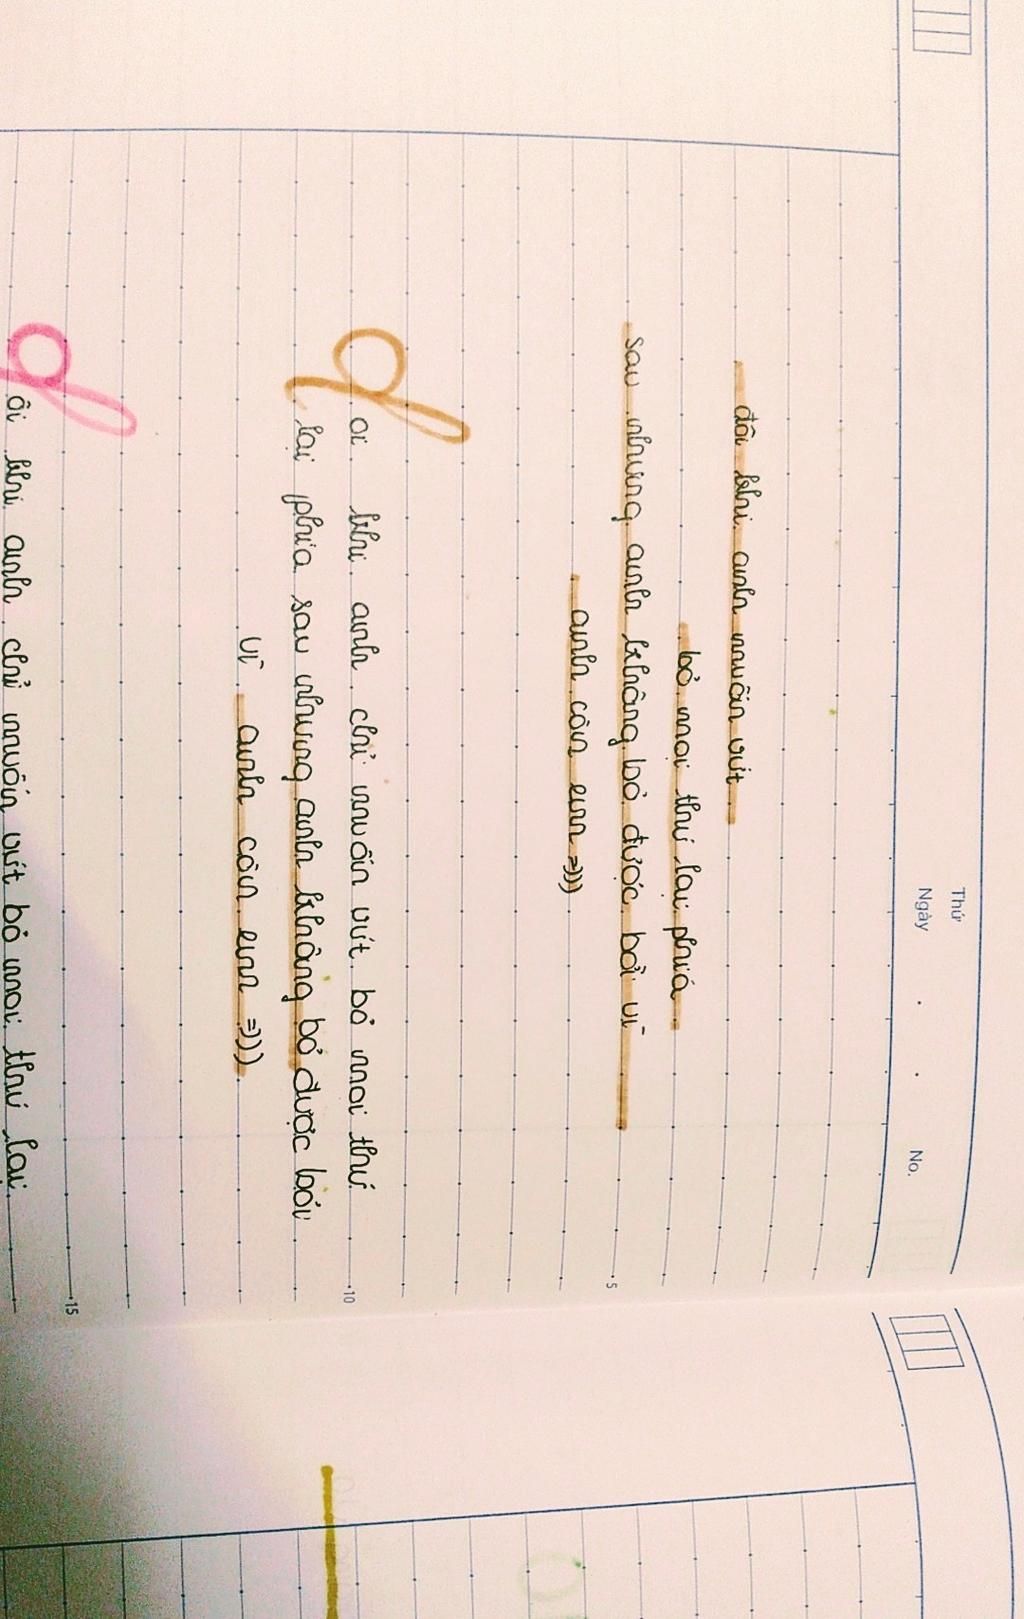 Thứ
Ngày . . No.
đôi khi anh muốn vứt
bỏ mọi thứ lại phiá
5
sau nhưng anh không bỏ được bởi vì
anh còn em =)))
Đôi khi anh chỉ muốn vứt bỏ mọi thứ
10
lại phia sau nhưng anh không bỏ được bởi
vì anh còn em =)))
15
Đôi khi anh chỉ muốn vứt bỏ mọi thứ lại